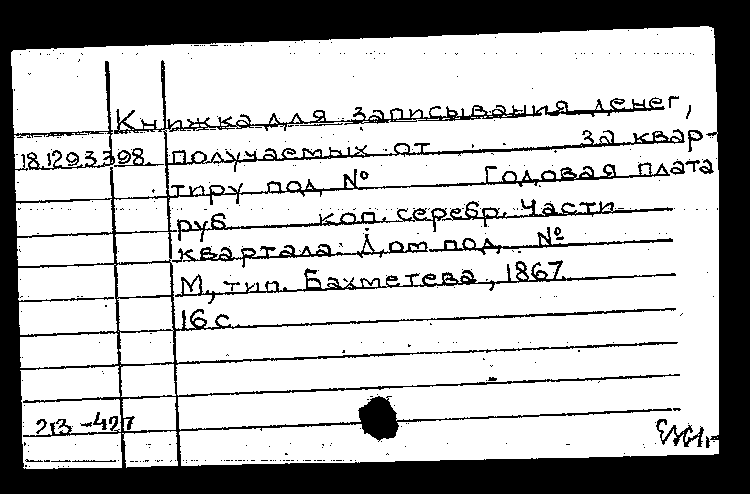 Книжка для записывания денег,
18.129.3.398. получаемых от за квар-
тиру под № Годовая плата
руб коп. серебр. Части
квартала: Дом под №
М., тип. Бахметева, 1867.
16 с.
213-427